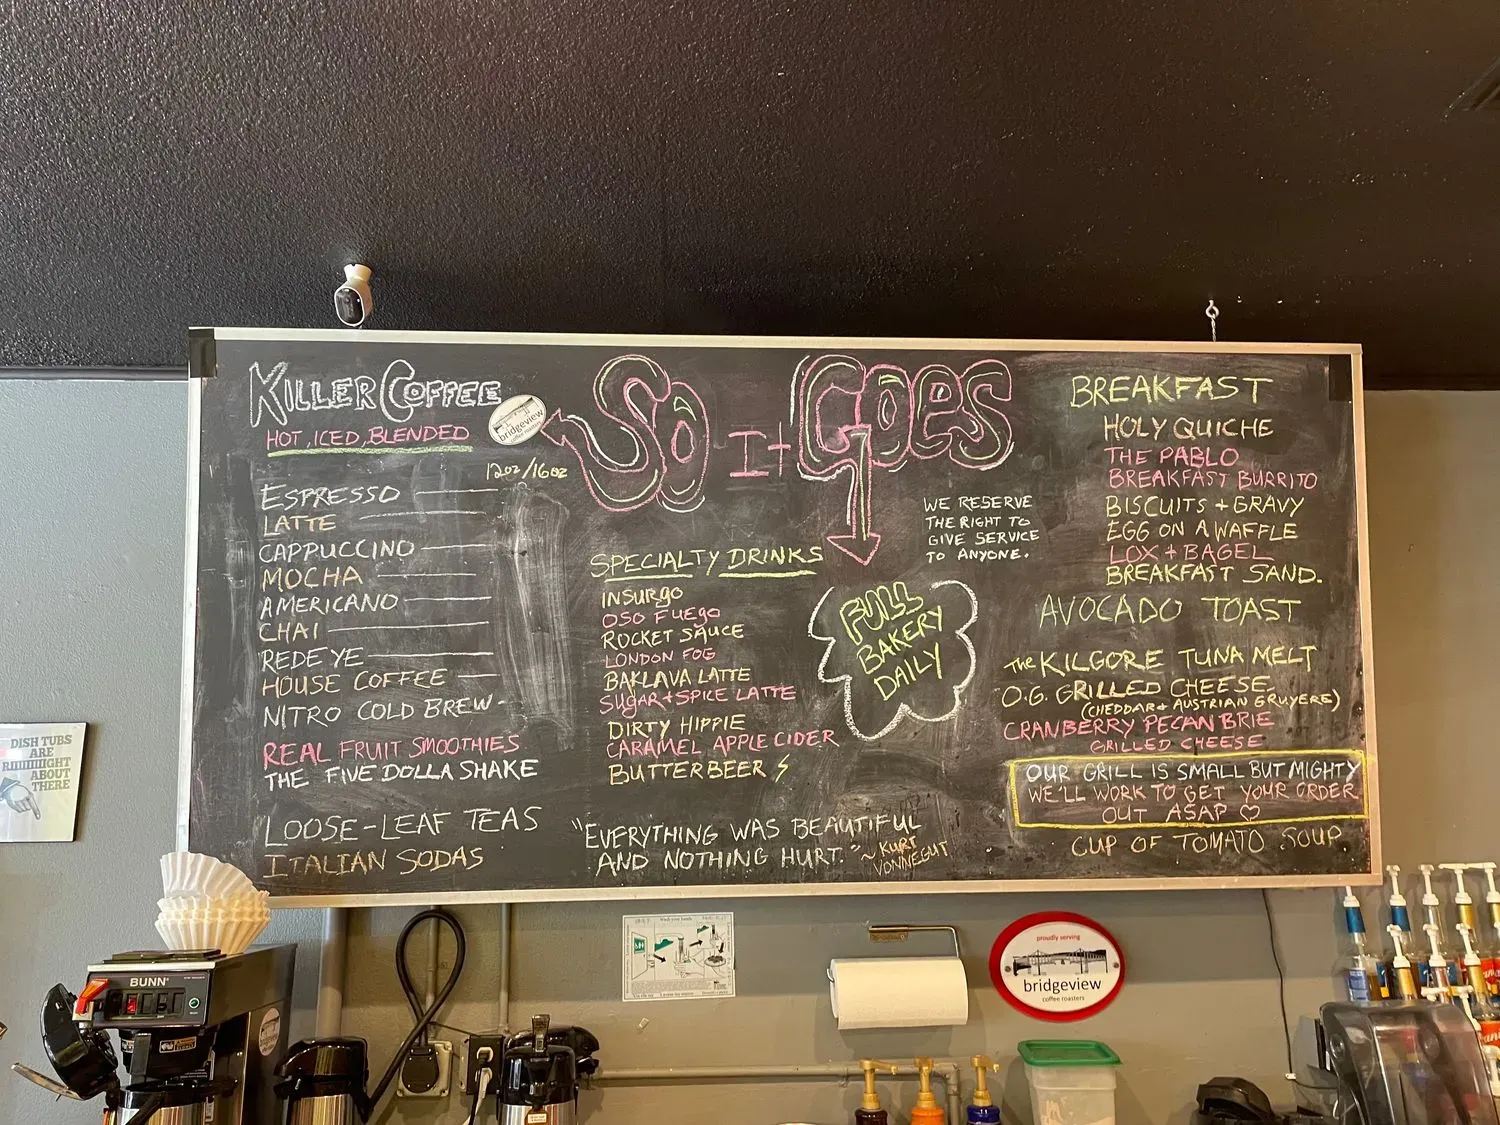 KILLER COFFEE
HOT, ICED, BLENDED
bridgeview
coffee roasters
12oz/16oz
ESPRESSO
LATTE
CAPPUCCINO
MOCHA
AMERICANO
CHAI
REDEYE
HOUSE COFFEE
NITRO COLD BREW
REAL FRUIT SMOOTHIES
THE FIVE DOLLA SHAKE
LOOSE-LEAF TEAS
ITALIAN SODAS
So It Goes
WE RESERVE
THE RIGHT TO
GIVE SERVICE
TO ANYONE.
SPECIALTY DRINKS
INSURGO
OSO FUEGO
ROCKET SAUCE
LONDON FOG
BAKLAVA LATTE
SUGAR + SPICE LATTE
DIRTY HIPPIE
CARAMEL APPLE CIDER
BUTTERBEER
FULL
BAKERY
DAILY
"EVERYTHING WAS BEAUTIFUL
AND NOTHING HURT." ~ KURT
VONNEGUT
BREAKFAST
HOLY QUICHE
THE PABLO
BREAKFAST BURRITO
BISCUITS + GRAVY
EGG ON A WAFFLE
LOX + BAGEL
BREAKFAST SAND.
AVOCADO TOAST
The KILGORE TUNA MELT
O.G. GRILLED CHEESE
(CHEDDAR + AUSTRIAN GRUYERE)
CRANBERRY PECAN BRIE
GRILLED CHEESE
OUR GRILL IS SMALL BUT MIGHTY
WE'LL WORK TO GET YOUR ORDER
OUT ASAP ♡
CUP OF TOMATO SOUP
DISH TUBS
ARE
ABOUT
THERE
BUNN
Wash your hands
proudly serving
bridgeview
coffee roasters